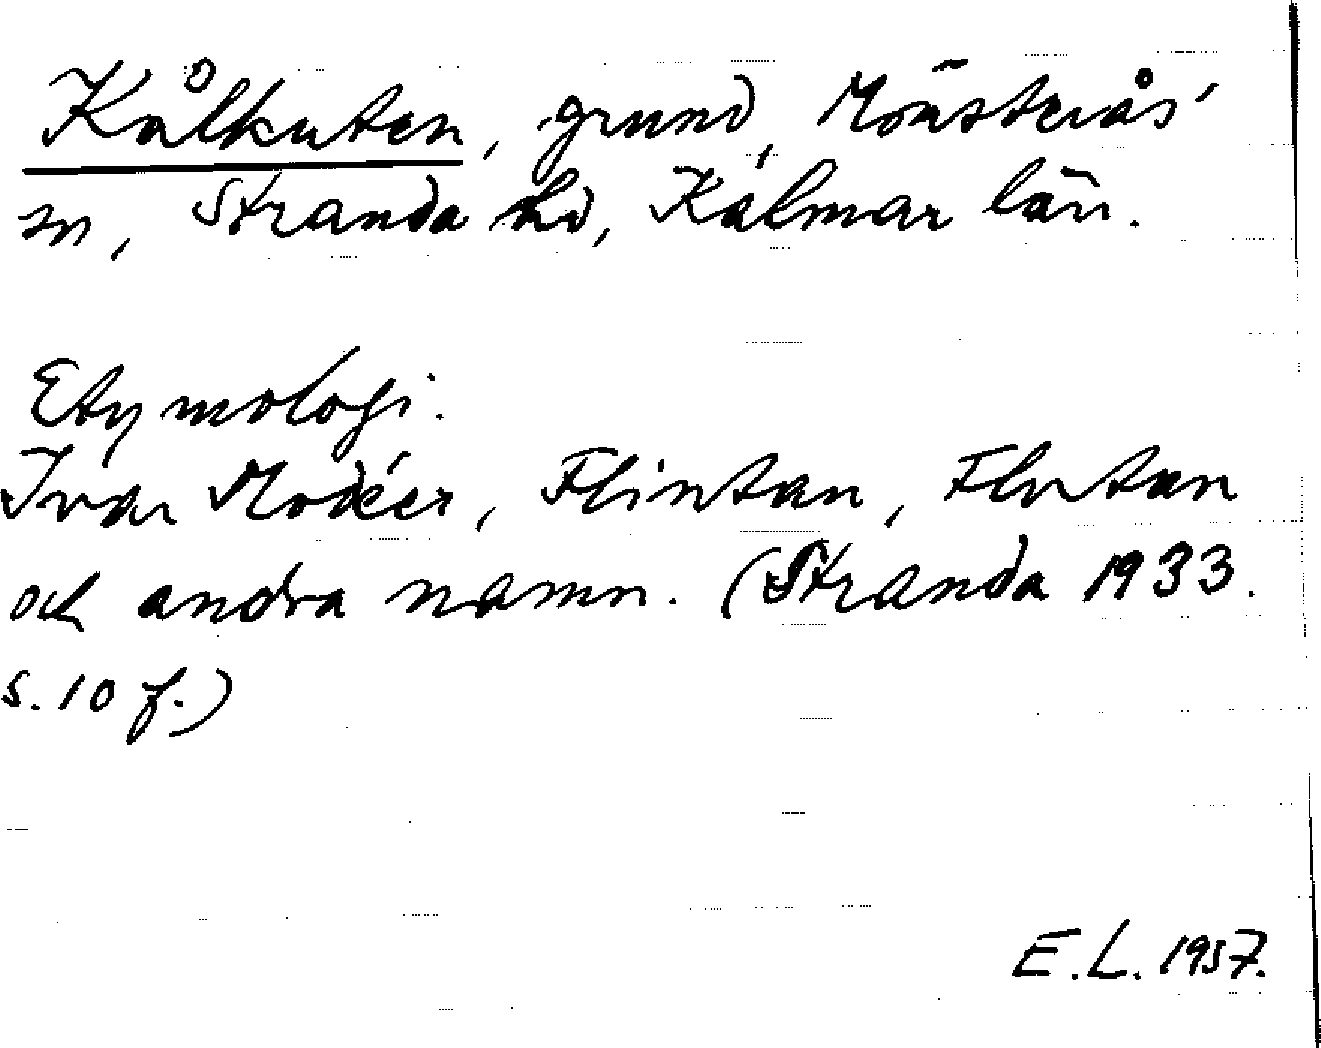 Kålkuten, grund, Mönsterås
sn, Stranda hd, Kalmar län.
Etymologi.
Ivar Modéer, Flintan, Flutan
och andra namn. (Stranda 1933.
s. 10 f.)
E.L. 1957.